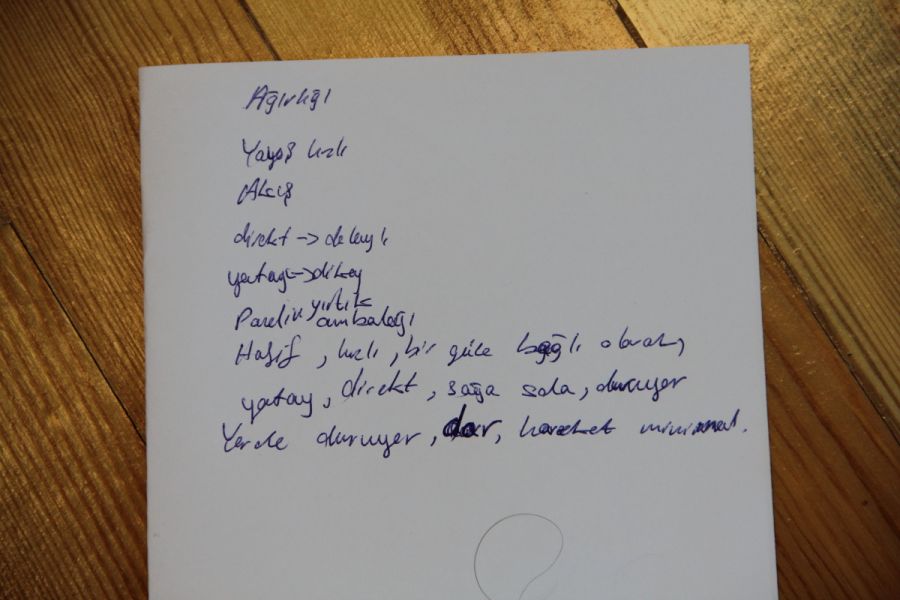 Ağırlığı
Yavaş hızlı
Akış
direkt -> dolaylı
yatay -> dikey
yırtık
ambalağı
Hafif, hızlı, bir güce bağlı olarak,
yatay, direkt, sağa sola, duruyor
Yerde duruyor, dar, hareket minimal.